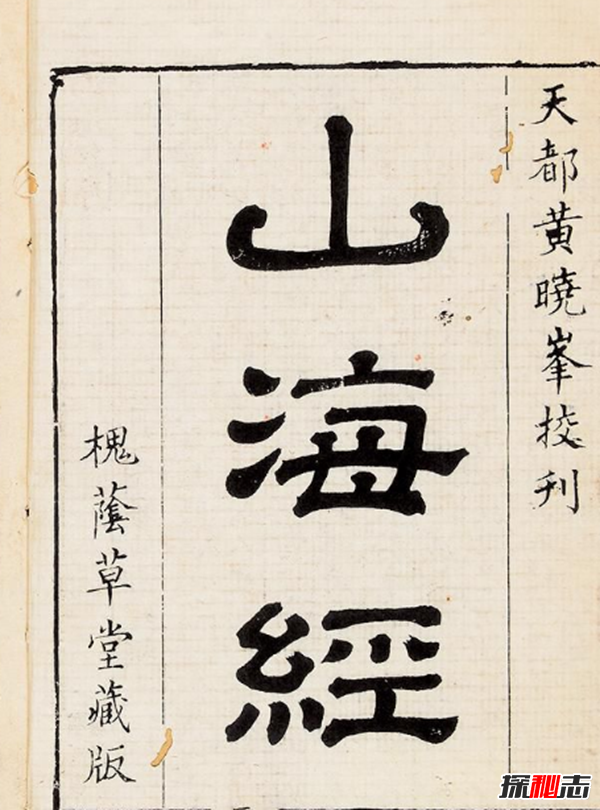 天都黄曉峯挍刋
山海經
槐蔭草堂藏版
探秘志